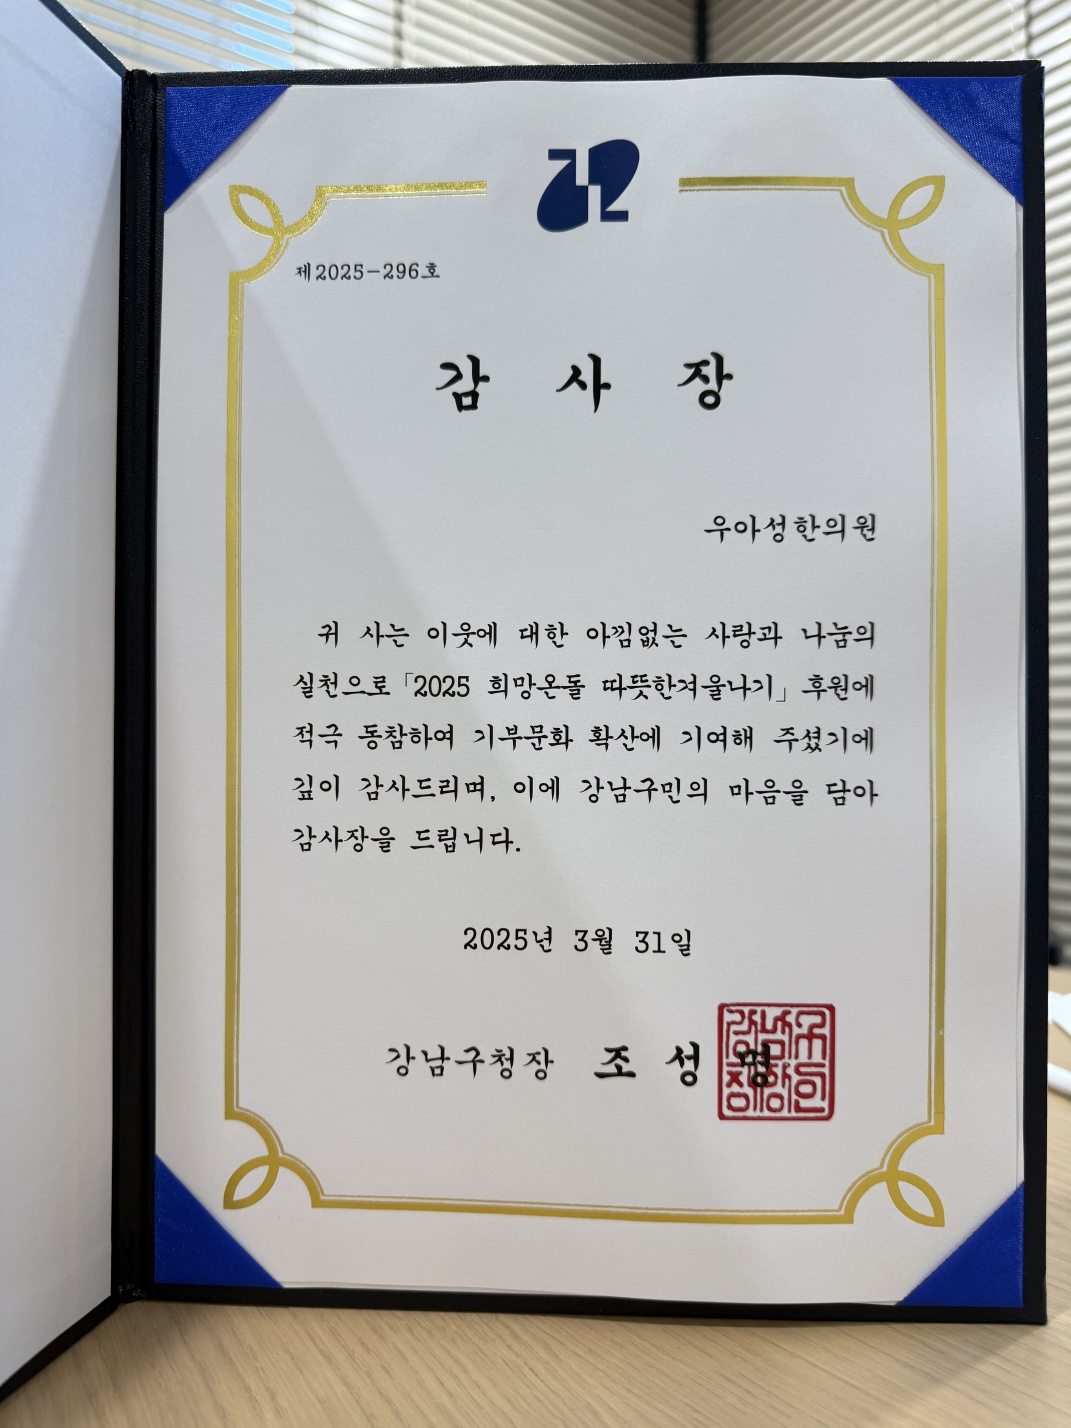 제2025-296호
감 사 장
우아성한의원
귀 사는 이웃에 대한 아낌없는 사랑과 나눔의
실천으로 「2025 희망온돌 따뜻한겨울나기」 후원에
적극 동참하여 기부문화 확산에 기여해 주셨기에
깊이 감사드리며, 이에 강남구민의 마음을 담아
감사장을 드립니다.
2025년 3월 31일
강남구청장 조 성 명